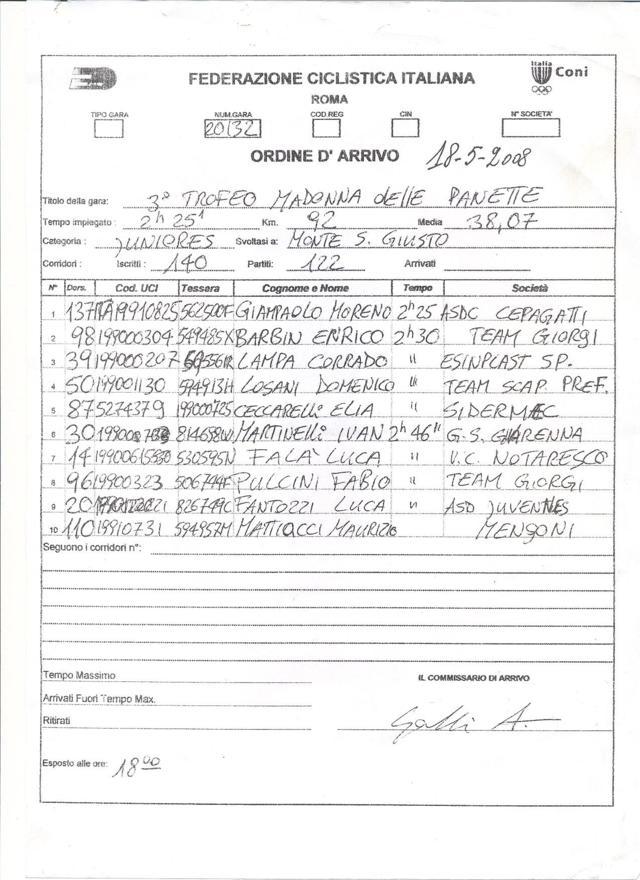 Italia
Coni
FEDERAZIONE CICLISTICA ITALIANA
ROMA
TIPO GARA NUM.GARA COD.REG CIN N° SOCIETA'
20132
ORDINE D' ARRIVO 18-5-2008
Titolo della gara: 3° TROFEO MADONNA delle PANETTE
Tempo impiegato : 2h 25' Km. 92 Media 38,07
Categoria : JUNIORES Svoltasi a: MONTE S. GIUSTO
Corridori : Iscritti : 140 Partiti: 122 Arrivati
N° Dors. Cod. UCI Tessera Cognome e Nome Tempo Società
1 137 ITA19910825 562500F GIAMPAOLO MORENO 2h25 ASDC CEPAGATTI
2 98 199000304 549485X BARBIN ENRICO 2h30 TEAM GIORGI
3 39 199000207 LAMPA CORRADO " ESINPLAST SP.
4 50 199001130 594913H LOSANI DOMENICO " TEAM SCAP. PREF.
5 87 5274379 199000725 CECCARELLI ELIA " SIDERMEC
6 30 814658W MARTINELLI IVAN 2h 46" G.S. GHARENNA
7 14 530595N FALA' LUCA " V.C. NOTARESCO
8 96 19900323 506744F PULCINI FABIO " TEAM GIORGI
9 20 826749C FANTOZZI LUCA " ASD JUVENNES
10 110 19910731 594957M MATTIACCI MAURIZIO MENGONI
Seguono i corridori n°:
Tempo Massimo IL COMMISSARIO DI ARRIVO
Arrivati Fuori Tempo Max.
Ritirati Galli A.
Esposto alle ore: 18 00